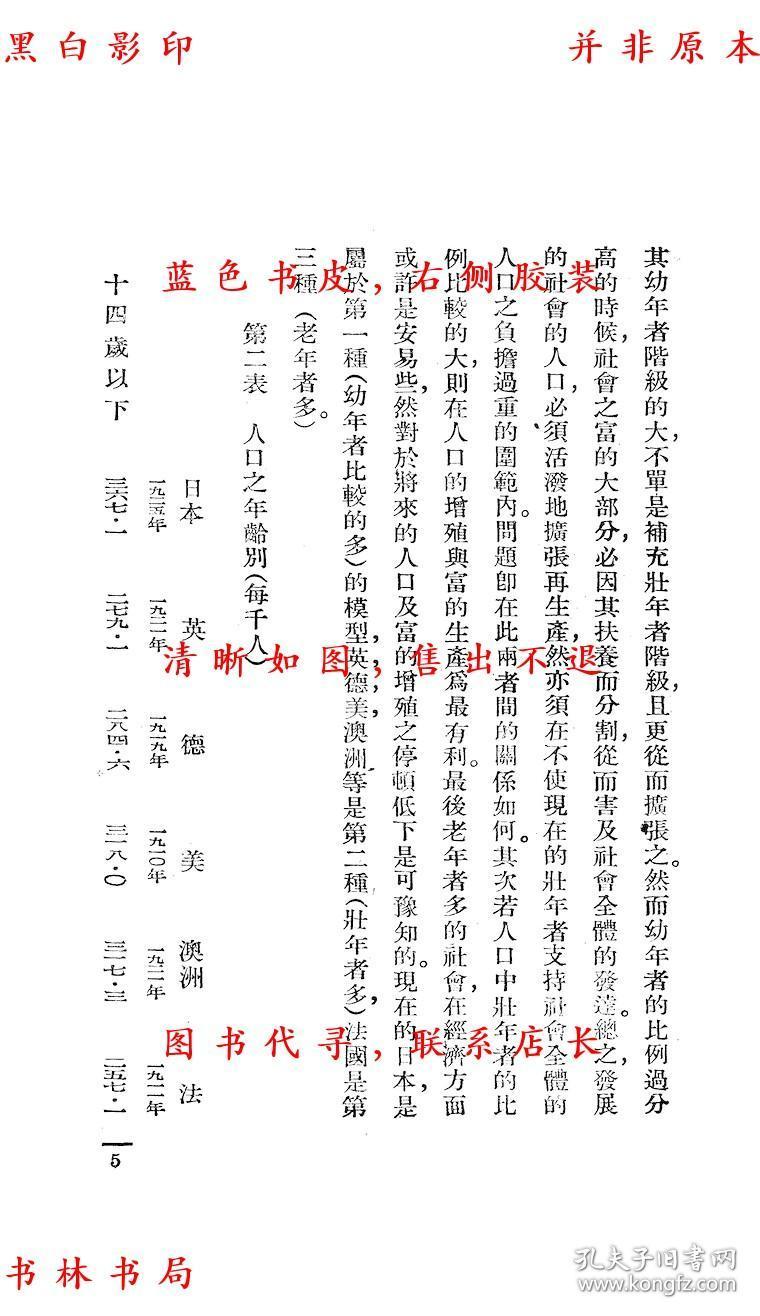 黑白影印
并非原本
其幼年者階級的大，不單是補充壯年者階級，且更從而擴張之。然而幼年者的比例過分
高的時候，社會之富的大部分，必因其扶養而分割，從而害及社會全體的發達。總之，發展
的社會的人口，必須活潑地擴張再生產，然亦須在不使現在的壯年者支持社會全體的
人口之負擔過重的圍範內。問題卽在此兩者間的關係如何。其次若人口中壯年者的比
例比較的大，則在人口的增殖與富的生產爲最有利。最後老年者多的社會，在經濟方面
或許是安易些，然對於將來的人口及富的增殖之停頓低下是可豫知的。現在的日本，是
屬於第一種（幼年者比較的多）的模型，英，德，美，澳洲等是第二種（壯年者多，）法國是第
三種（老年者多）。
第二表　人口之年齡別（每千人）
日本　英　德　美　澳洲　法
一九二五年　一九二一年　一九一九年　一九一〇年　一九二一年　一九一一年
十四歲以下　三六七·一　二七九·一　二八四·六　三一八·〇　三一七·三　二五七·一
5
蓝色书皮，右侧胶装
清晰如图，售出不退
图书代寻，联系店长
书林书局
孔夫子旧书网
www.kongfz.com